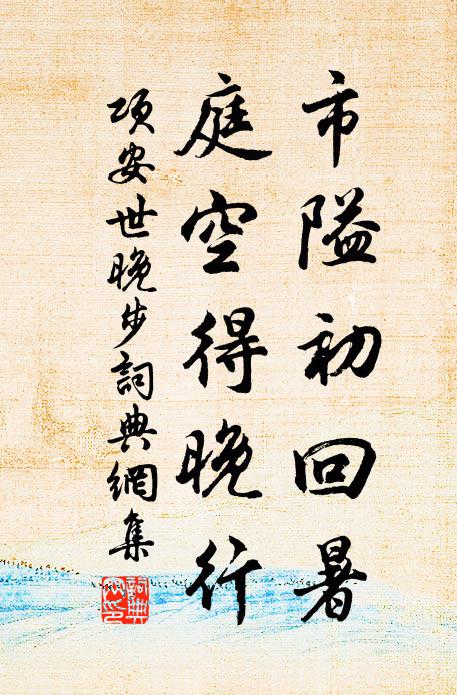 市隘初回暑
庭空得晚行
项安世晚步詞典網集